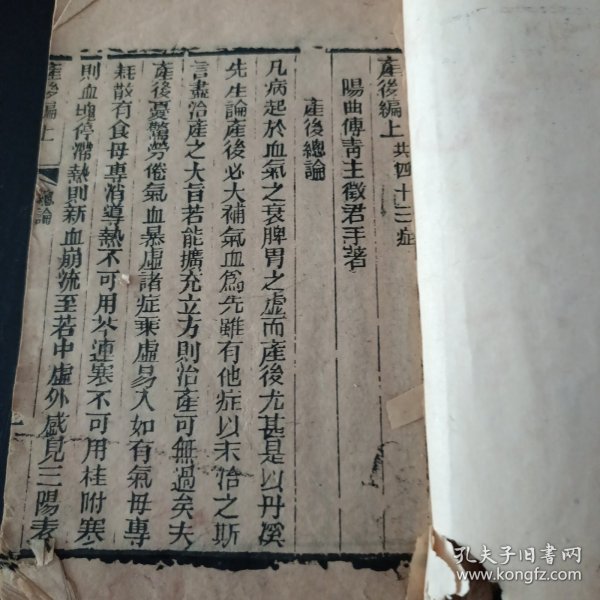 產後編上 共四十三症
陽曲傅青主徵君手著
產後總論
凡病起於血氣之衰脾胃之虛而產後尤甚是以丹溪
先生論產後必大補氣血爲先雖有他症以末治之斯
言盡治產之大旨若能擴充立方則治產可無過矣夫
產後憂驚勞倦氣血暴虛諸症乘虛易入如有氣毋專
耗散有食毋專消導熱不可用芩連寒不可用桂附寒
則血塊停滯熱則新血崩流至若中虛外感見三陽表
產後編上
總論
孔夫子旧书网
www.kongfz.com